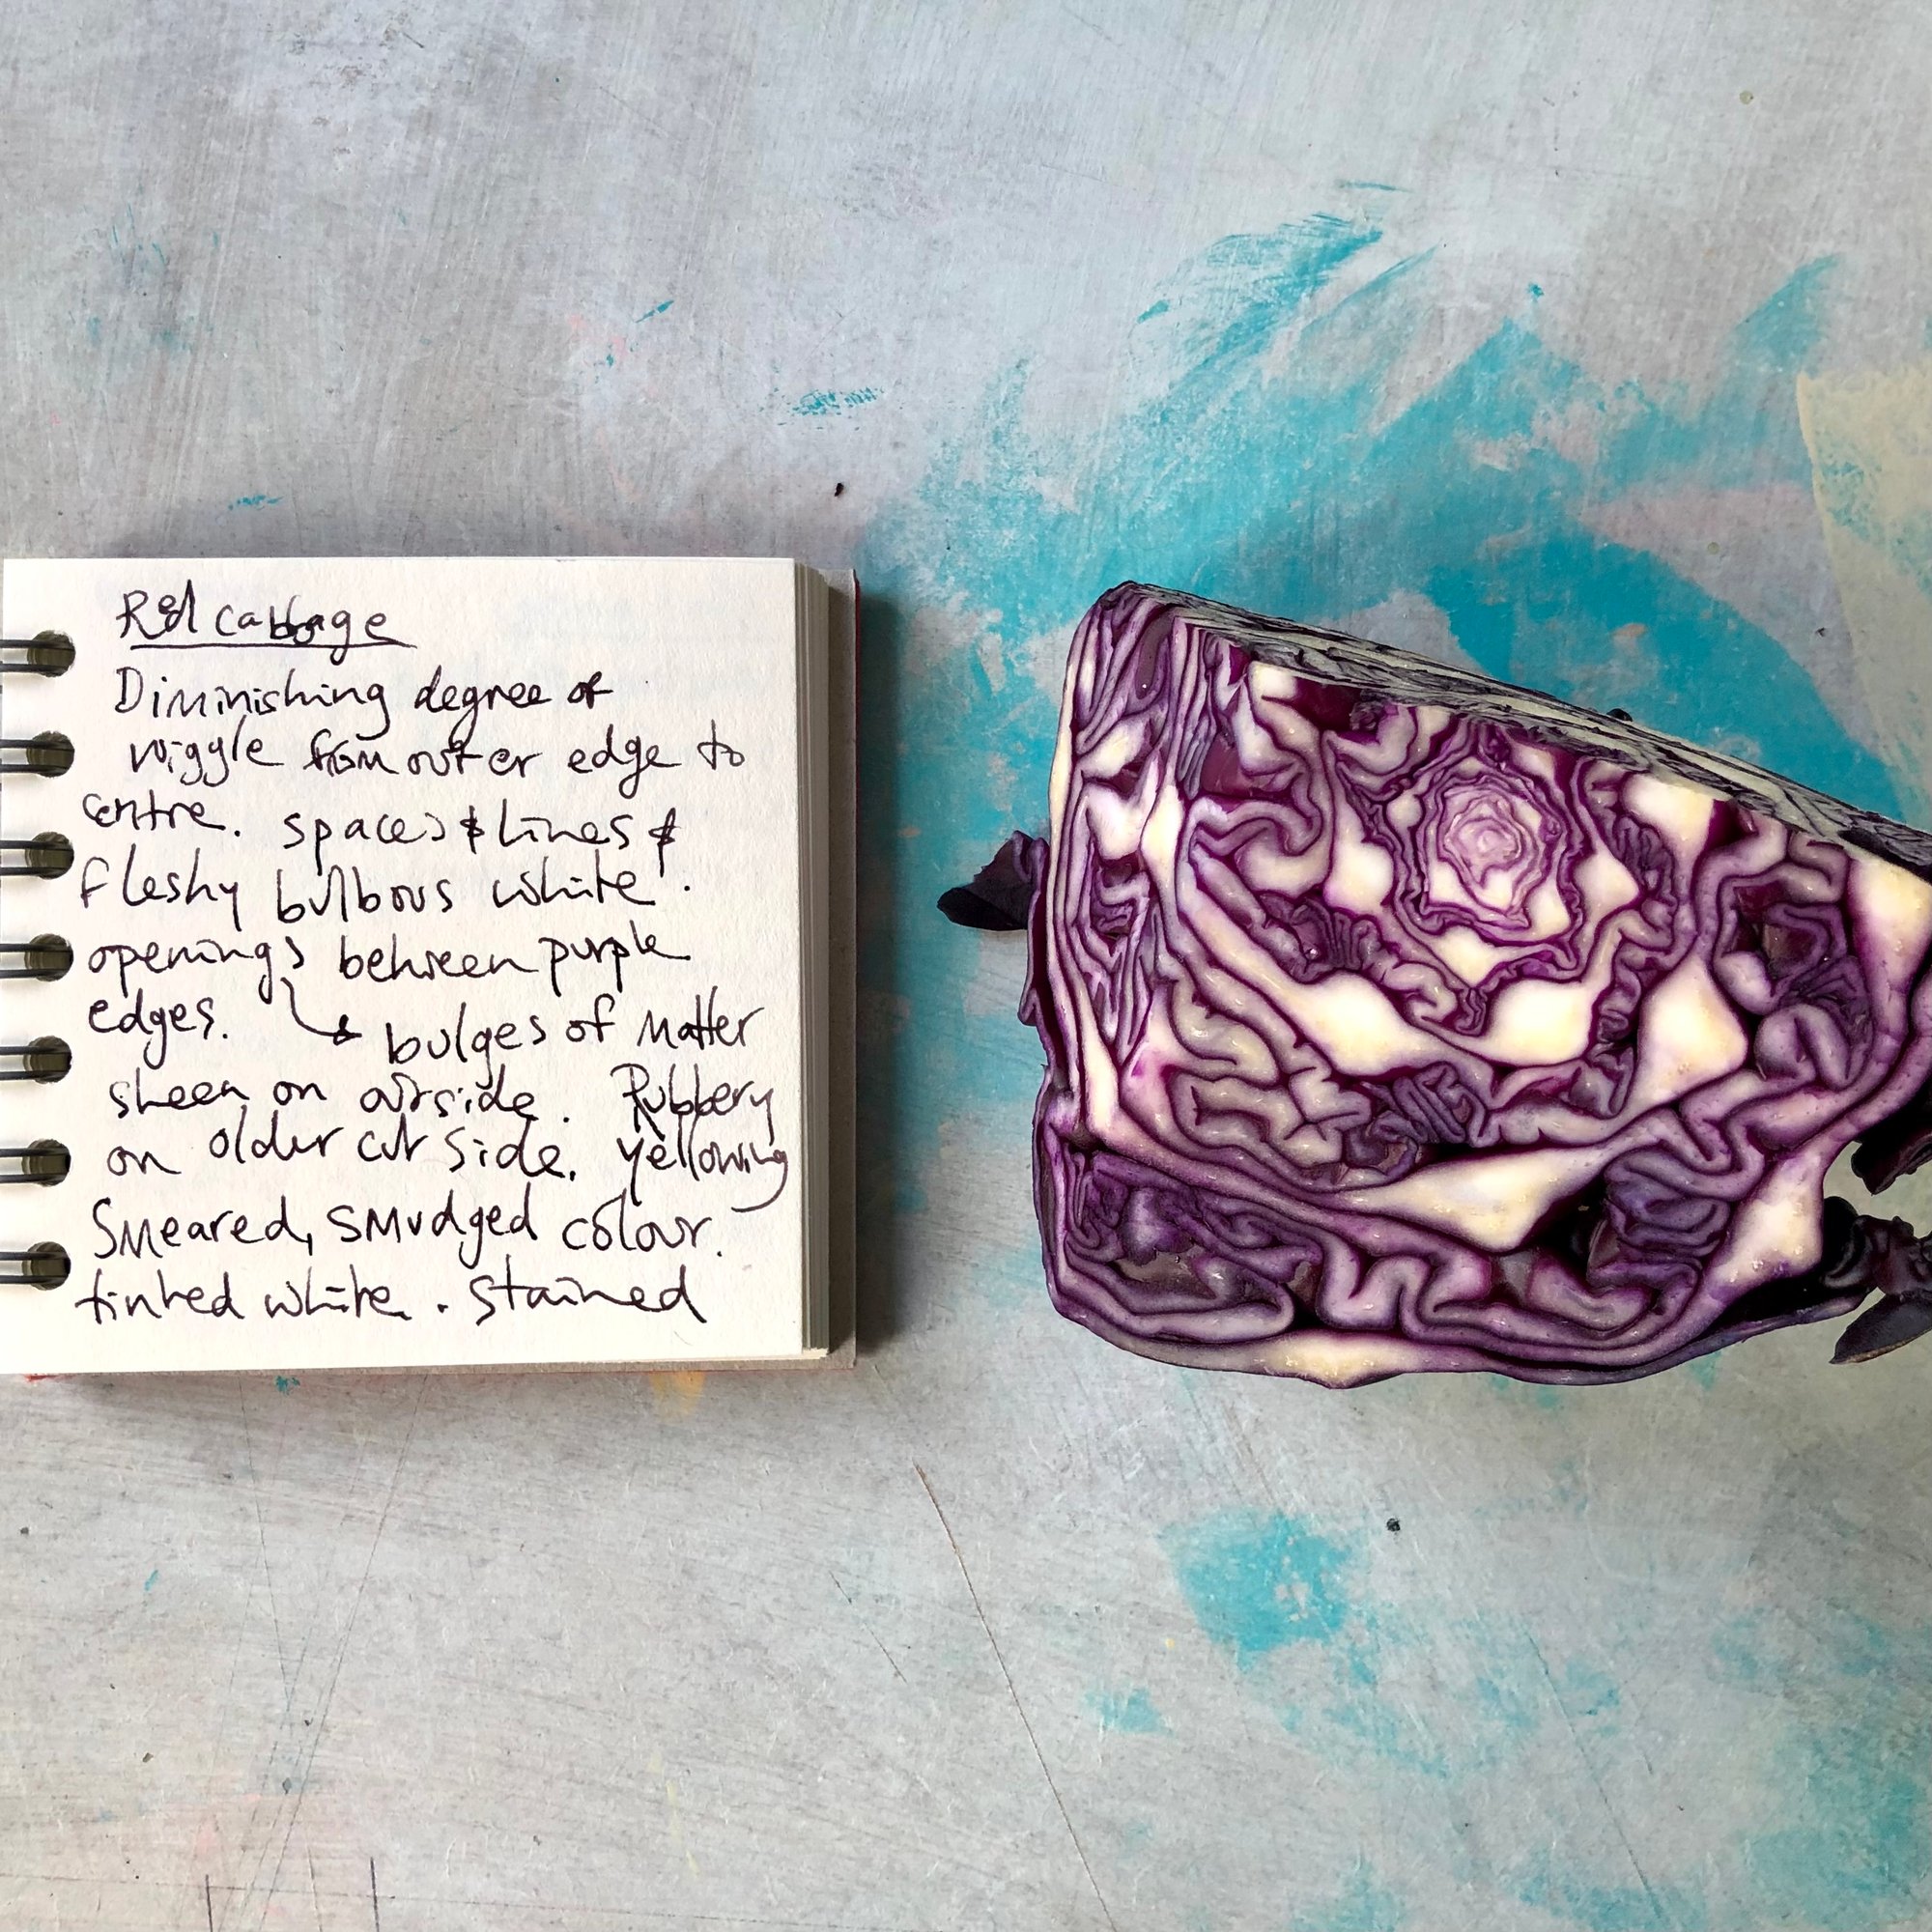 Red cabbage
Diminishing degree of
wiggle from outer edge to
centre. spaces & lines &
fleshy bulbous white.
openings between purple
edges. bulges of matter
sheen on outside. Rubbery
on older cut side. yellowing
Smeared, smudged colour.
tinted white. stained